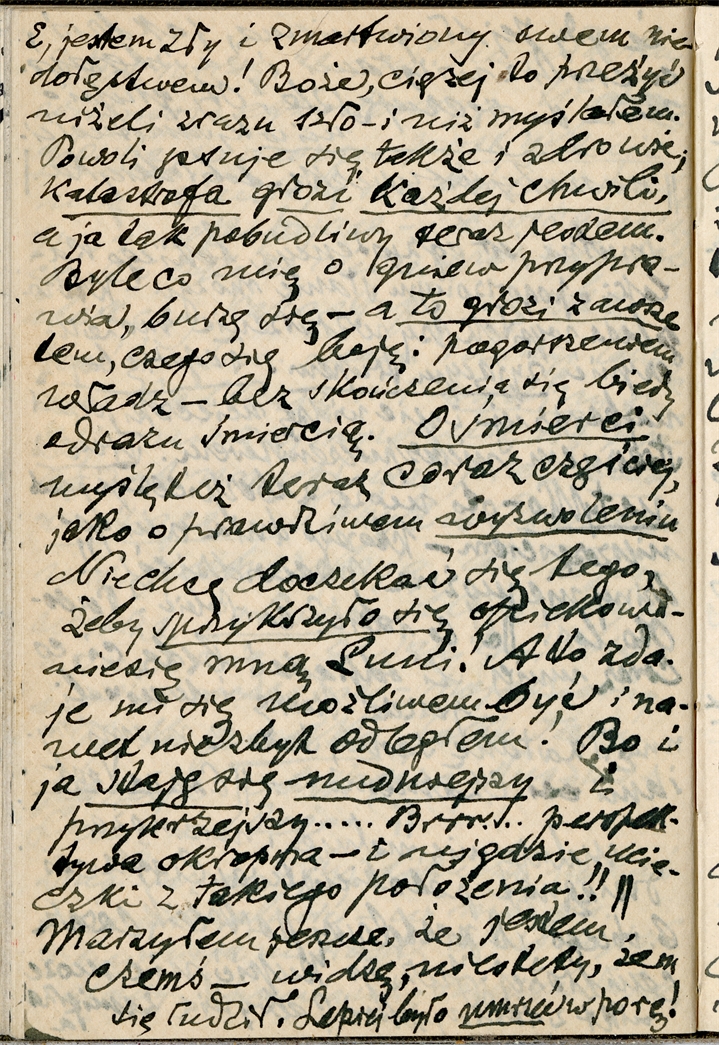 E, jestem zły i zmartwiony swem nie-
dołęstwem! Boże, ciężej to przeżyć
niżeli zrazu szło – i niż myślałem.
Powoli psuje się także i zdrowie;
katastrofa grozi każdej chwili,
a ja tak pobudliwy teraz jestem.
Byle co mię o gniew przypra-
wia, burzę się – a to grozi zawsze
tem, czego się boję: pogorszeniem
władz – bez skończenia się biedy
odrazu śmiercią. O śmierci
myślę też teraz coraz częściej,
jako o prawdziwem wyzwoleniu
Niechcę doczekać się tego,
żeby sprzykrzyło się opiekowa-
niesię mną Luni! A to zda-
je mi się możliwem być i na-
wet niezbyt odległem! Bo i
ja staję się nudniejszy i
przykrzejszy..... Brrr... perspek-
tywa okropna – i nigdzie ucie-
czki z takiego położenia!!
Marzyłem jeszcze, że jestem
czemś – widzę, niestety, żem
się łudził. Lepiej było umrzeć w porę!